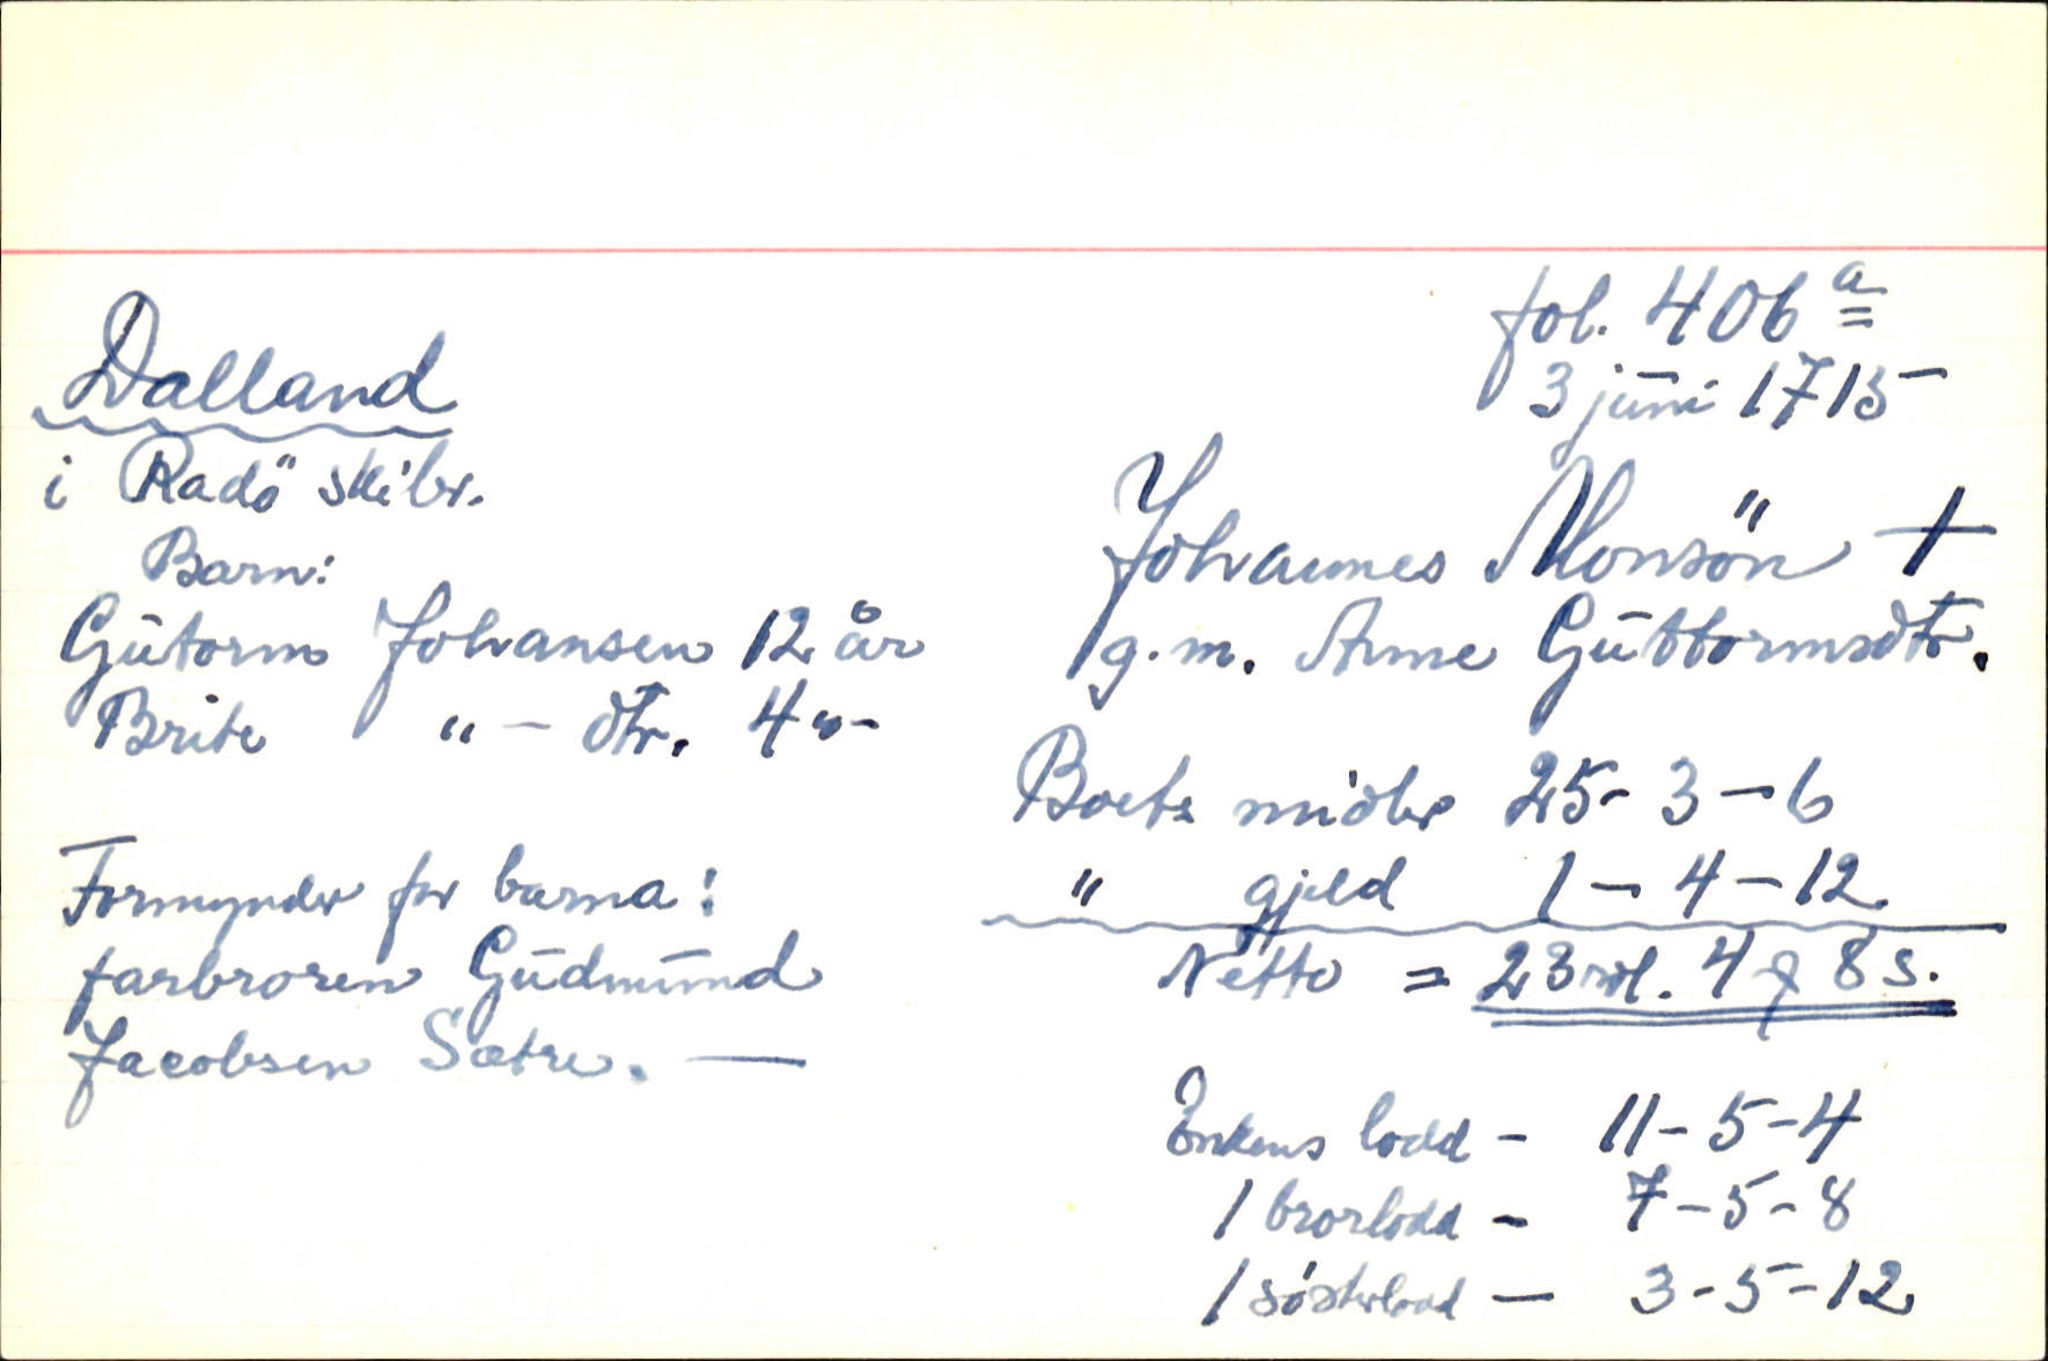 fol. 406 a
3 juni 1715
Dalland
i Radö skibr.
Barn:
Gutorm Johansen 12 år
Brite " - dtr. 4 " -
Formynder for barna:
farbroren Gudmund
Jacobsen Sætre. —
Johannes Monsön +
g.m. Anne Guttormsdtr.
Boets midler 25 - 3 - 6
" gjeld 1 - 4 - 12
Netto = 23 rdl. 4 8 s.
Enkens lodd - 11 - 5 - 4
1 brorlodd - 7 - 5 - 8
1 sösterlodd - 3 - 5 - 12